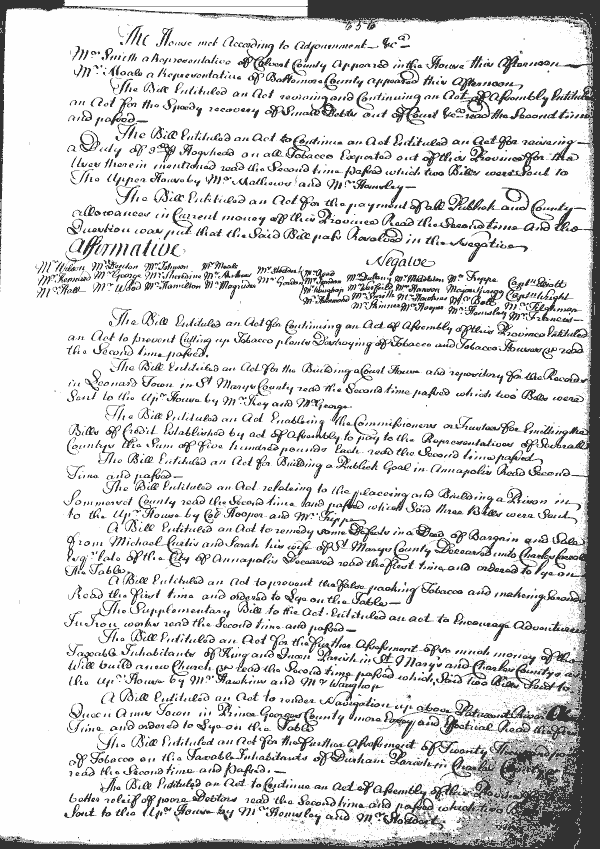 656
The House met According to Adjournment &ca
Mr. Smith a Representative of Calvert County Appeared in the House this Afternoon
Mr. Moale a Representative of Baltimore County appeared this Afternoon
The Bill Entituled an Act reviving and Continuing an Act of Assembly Entituled
an Act for the Speedy recovery of Small Debts out of Court &ca read the Second time
and passed
The Bill Entituled an Act to Continue an Act Entituled an Act for raising
a Duty of 3d Hogshead on all Tobacco Exported out of this Province for the
Uses therein mentioned read the Second time passed which two Bills were Sent to
The Upper House by Mr. Mathews and Mr. Hemsley
The Bill Entituled an Act for the payment of all Publick and County
allowances in Current money of this Province Read the Second time And the
Question was put that the Said Bill pass Resolved in the Negative
Affirmative Negative
Mr. Wilson Mr. Denton Mr. Johnson Mr. Moale
Mr. Kennard Mr. George Mr.
Mr. Hall Mr. Wood Mr. Hamilton Mr. Magruder
Mr. Gordon
Mr. Smith Mr. Hanson
Mr. Skinner Mr. Hooper Mr. Hemsley Mr. Francis
Mr. Trippe Capt. Wright Mr. Tilghman
The Bill Entituled an Act for Continuing an Act of Assembly of this Province Entituled
an Act to prevent Cutting up Tobacco plants Destroying of Tobacco and Tobacco Houses &c read
the Second time passed.
The Bill Entituled an Act for the Building a Court House and repository for the Records
in Leonard Town in St. Marys County read the Second time passed which two Bills were
Sent to the Upr. House by Mr. Key and Mr. George
The Bill Entituled an Act Enabling the Commissioners or Trustees for Emitting the
Bills of Credit Established by act of Assembly to pay to the Representatives of Severall
Countys the Sum of five hundred pounds Each read the Second time passed
The Bill Entituled an Act for Building a Publick Goal in Annapolis Read Second
Time and passed
The Bill Entituled an Act relateing to the placeing and Building a Prison in
Sommerset County read the Second time and passed which Said three Bills were Sent
to the Upr. House by Col. Hooper and Mr. Trippe
A Bill Entituled an Act to remedy some Defects in a Deed of Bargain and Sale
from Michael Curtis and Sarah his wife of St. Marys County Deceased unto Charles Carroll
Esqr. late of the City of Annapolis Deceased read the first time and ordered to lye on
the Table
A Bill Entituled an Act to prevent the false packing Tobacco and making Seconds
Read the first time and ordered to Lye on the Table
The Supplementary Bill to the Act Entituled an act to Encourage Adventurers
In Iron works read the Second time and passed
The Bill Entituled an Act for the further Assessment of so much money of the
Taxable Inhabitants of King and Queen Parish in St. Mary's and Charles Countys as
Will build a new Church &c read the Second time passed which Said two Bills Sent to
the Upr. House by Mr. Hawkins and Mr. Waughop
A Bill Entituled an Act to render Navigation up above Patuxent River
Queen Anns Town in Prince Georges County more Easy and Effectual Read the first
Time and ordered to Lye on the Table
The Bill Entituled an Act for the further Assessment of Twenty Thousand
of Tobacco on the Taxable Inhabitants of Durham Parish in Charles County
read the Second time and passed.
The Bill Entituled an Act to Continue an Act of Assembly of this Province
better releif of poore Debtors read the Second time and passed which two
Sent to the Upr. House by Mr. Hemsley and Mr.